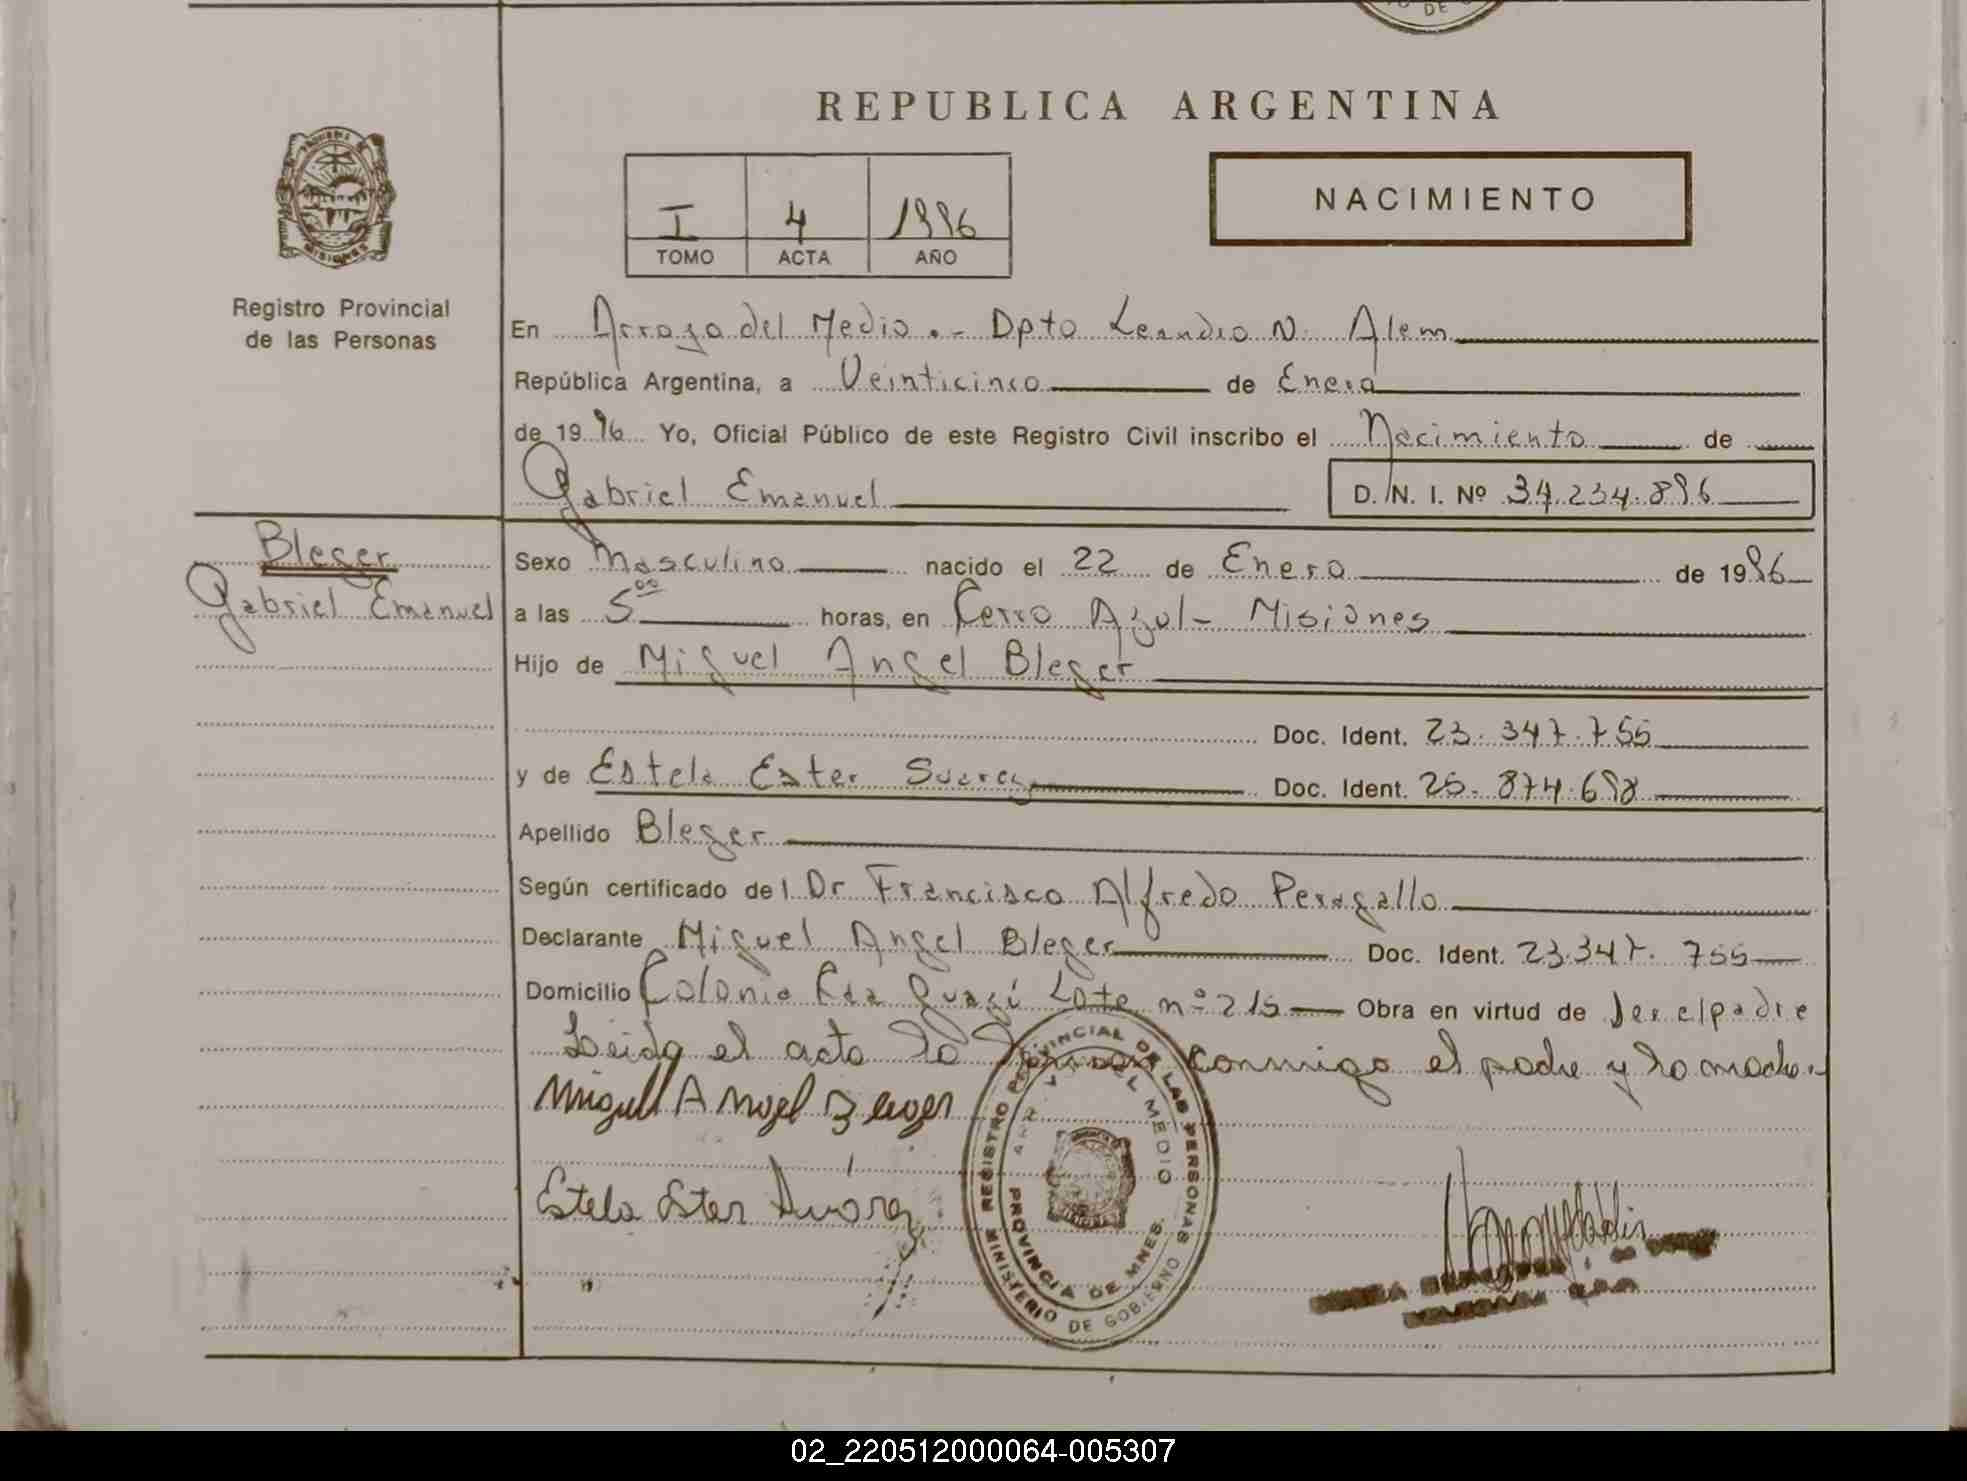 DE
REPUBLICA ARGENTINA
MISIONES
Registro Provincial
de las Personas
I 4 1996
TOMO ACTA AÑO
NACIMIENTO
En Arroyo del Medio.- Dpto Leandro N. Alem
República Argentina, a Veinticinco de Enero
de 1996 Yo, Oficial Público de este Registro Civil inscribo el Nacimiento de
Gabriel Emanuel D. N. I. Nº 39.234.896
Bleger
Gabriel Emanuel
Sexo Masculino nacido el 22 de Enero de 1996
a las 5 00 horas, en Cerro Azul- Misiones
Hijo de Miguel Angel Bleger
Doc. Ident. 23.347.755
y de Estela Ester Suarez Doc. Ident. 25.874.698
Apellido Bleger
Según certificado del Dr Francisco Alfredo Peragallo
Declarante Miguel Angel Bleger Doc. Ident. 23.347.755
Domicilio Colonia Lote nº 215 Obra en virtud de ser el padre
Leida el acta la firman conmigo el padre y la madre.-
Miguel Angel Bleger
Estela Ester Suárez
REGISTRO PROVINCIAL DE LAS PERSONAS
DEL MEDIO
PROVINCIA DE MNES.
MINISTERIO DE GOBIERNO
02_220512000064-005307